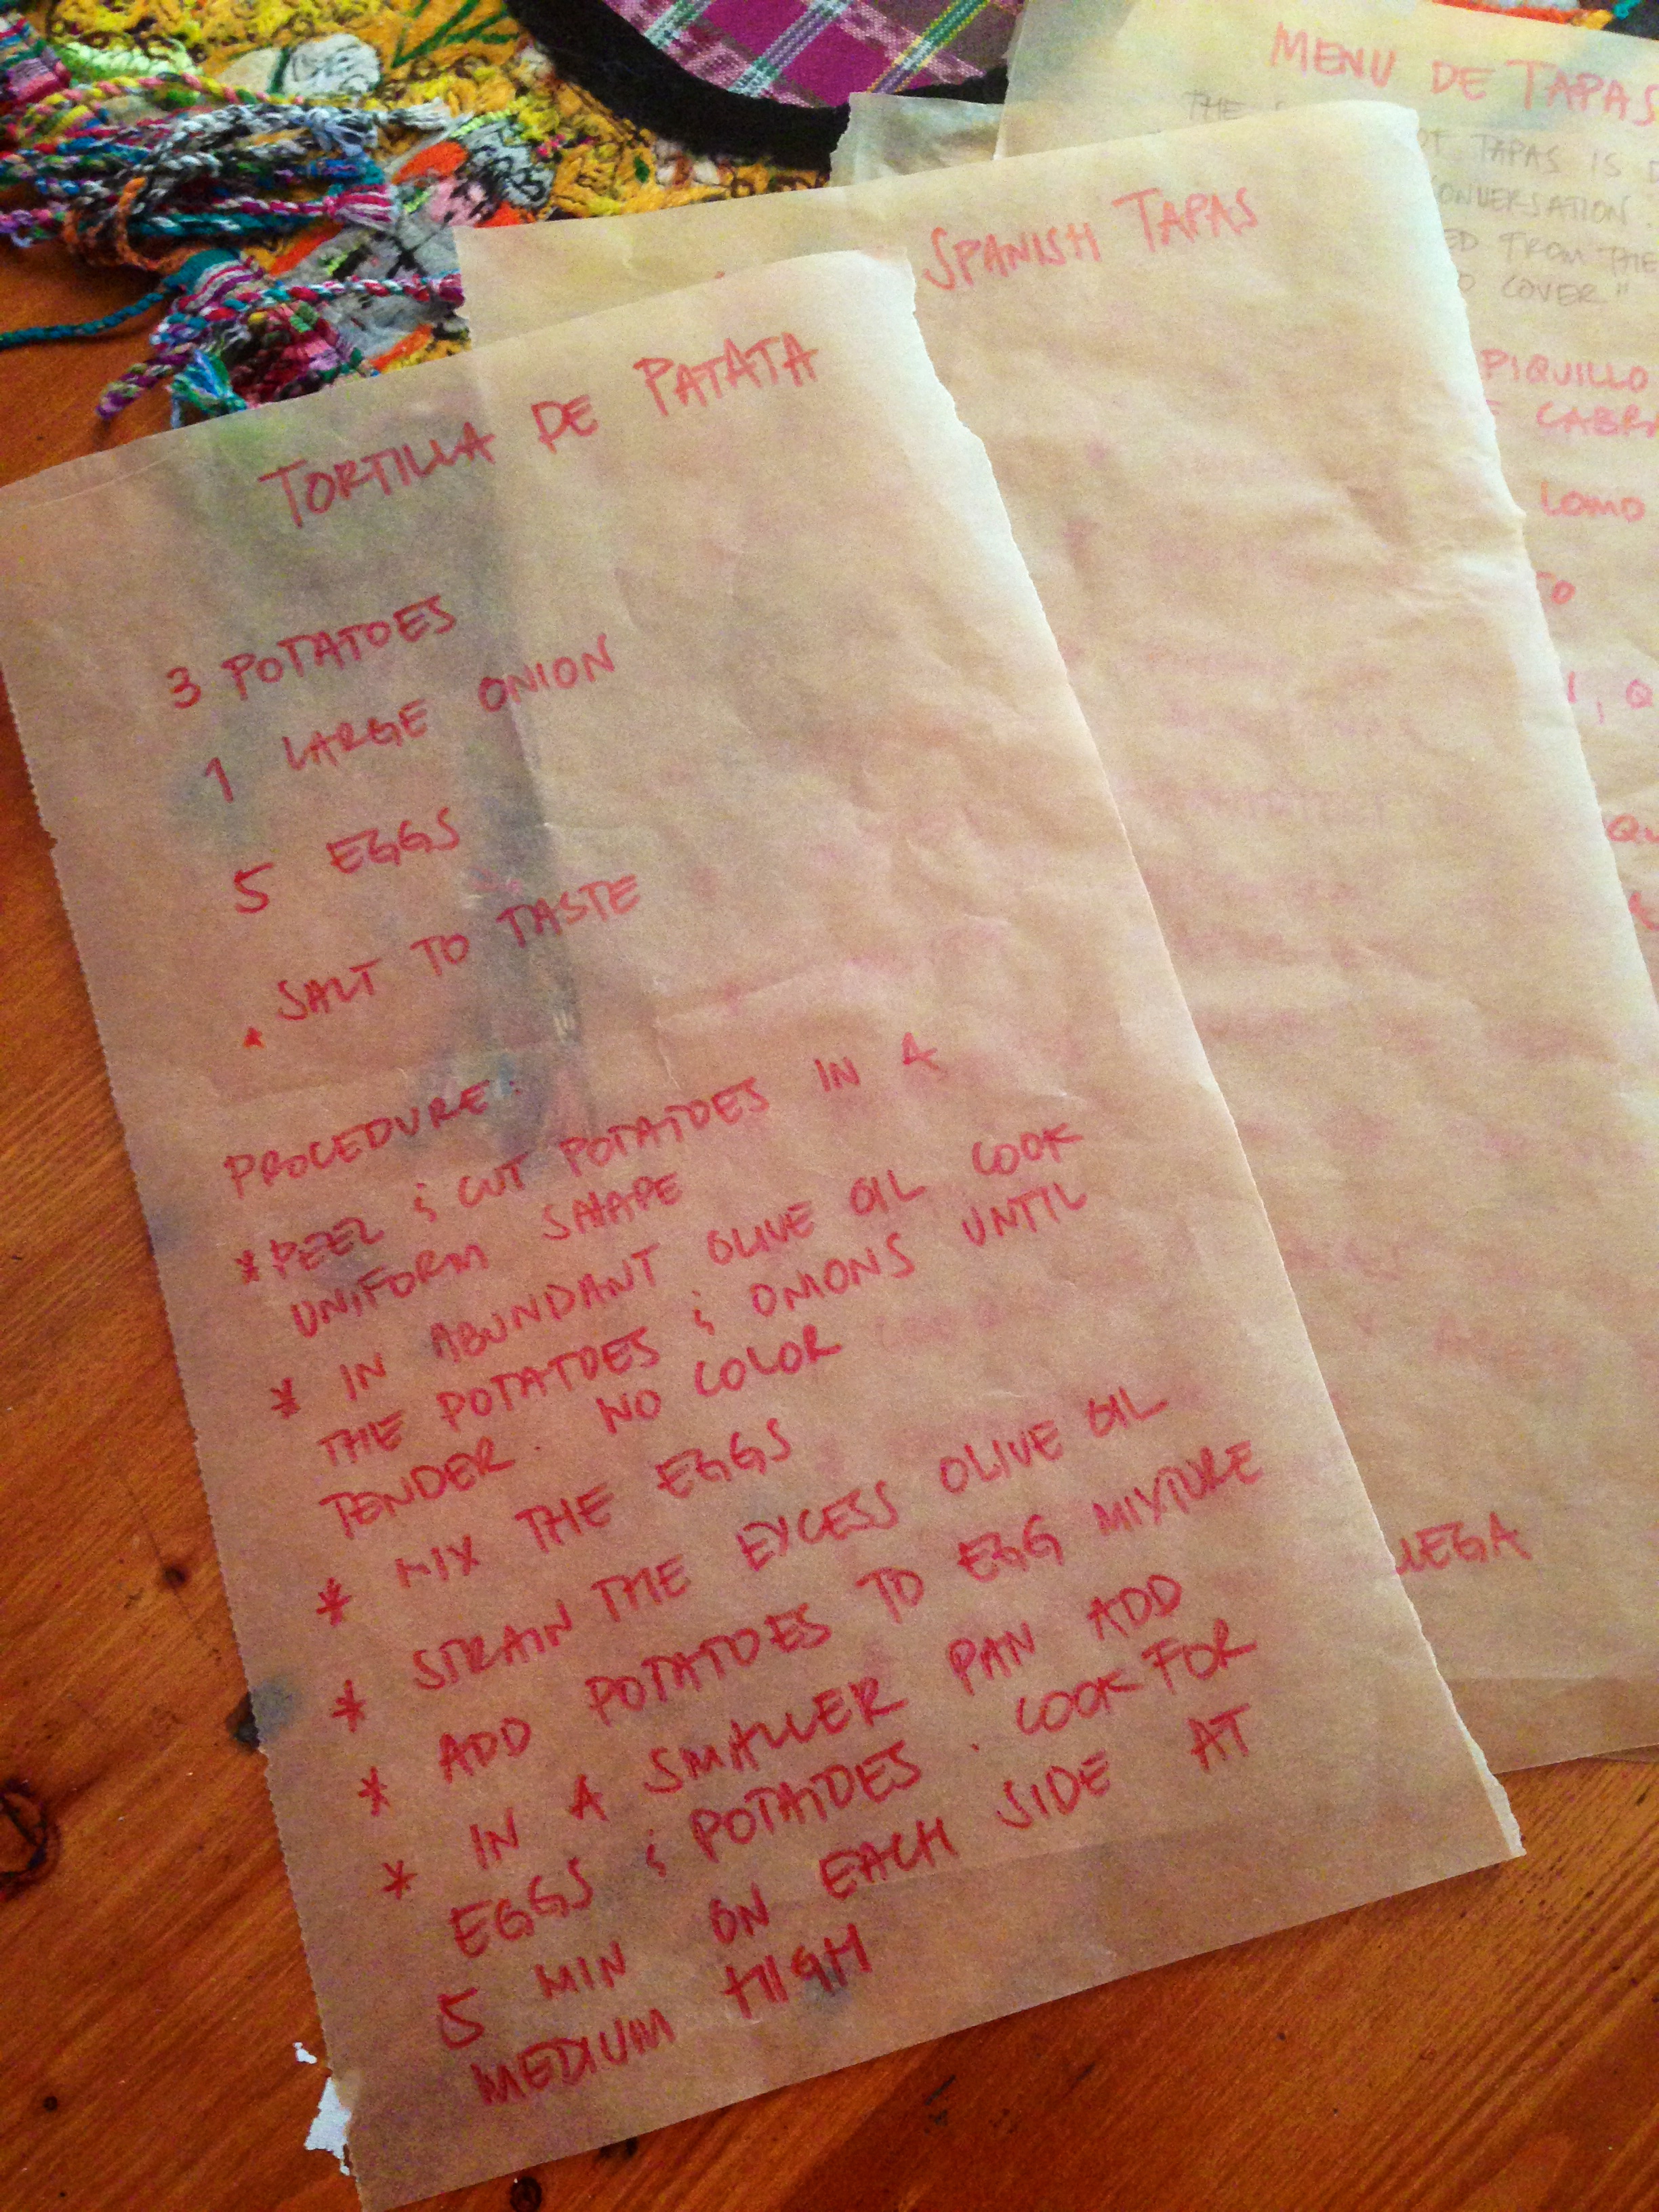 TORTILLA DE PATATA
3 POTATOES
1 LARGE ONION
5 EGGS
. SALT TO TASTE
PROCEDURE:
* PEEL & CUT POTATOES IN A
UNIFORM SHAPE
* IN ABUNDANT OLIVE OIL COOK
THE POTATOES & ONIONS UNTIL
TENDER. NO COLOR
* MIX THE EGGS
* STRAIN THE EXCESS OLIVE OIL
* ADD POTATOES TO EGG MIXTURE
* IN A SMALLER PAN ADD
EGGS & POTATOES. COOK FOR
5 MIN ON EACH SIDE AT
MEDIUM HIGH
SPANISH TAPAS
MENU DE TAPAS
THE
OF TAPAS IS
CONVERSATION.
FROM THE
COVER"
PIQUILLO
LOMO